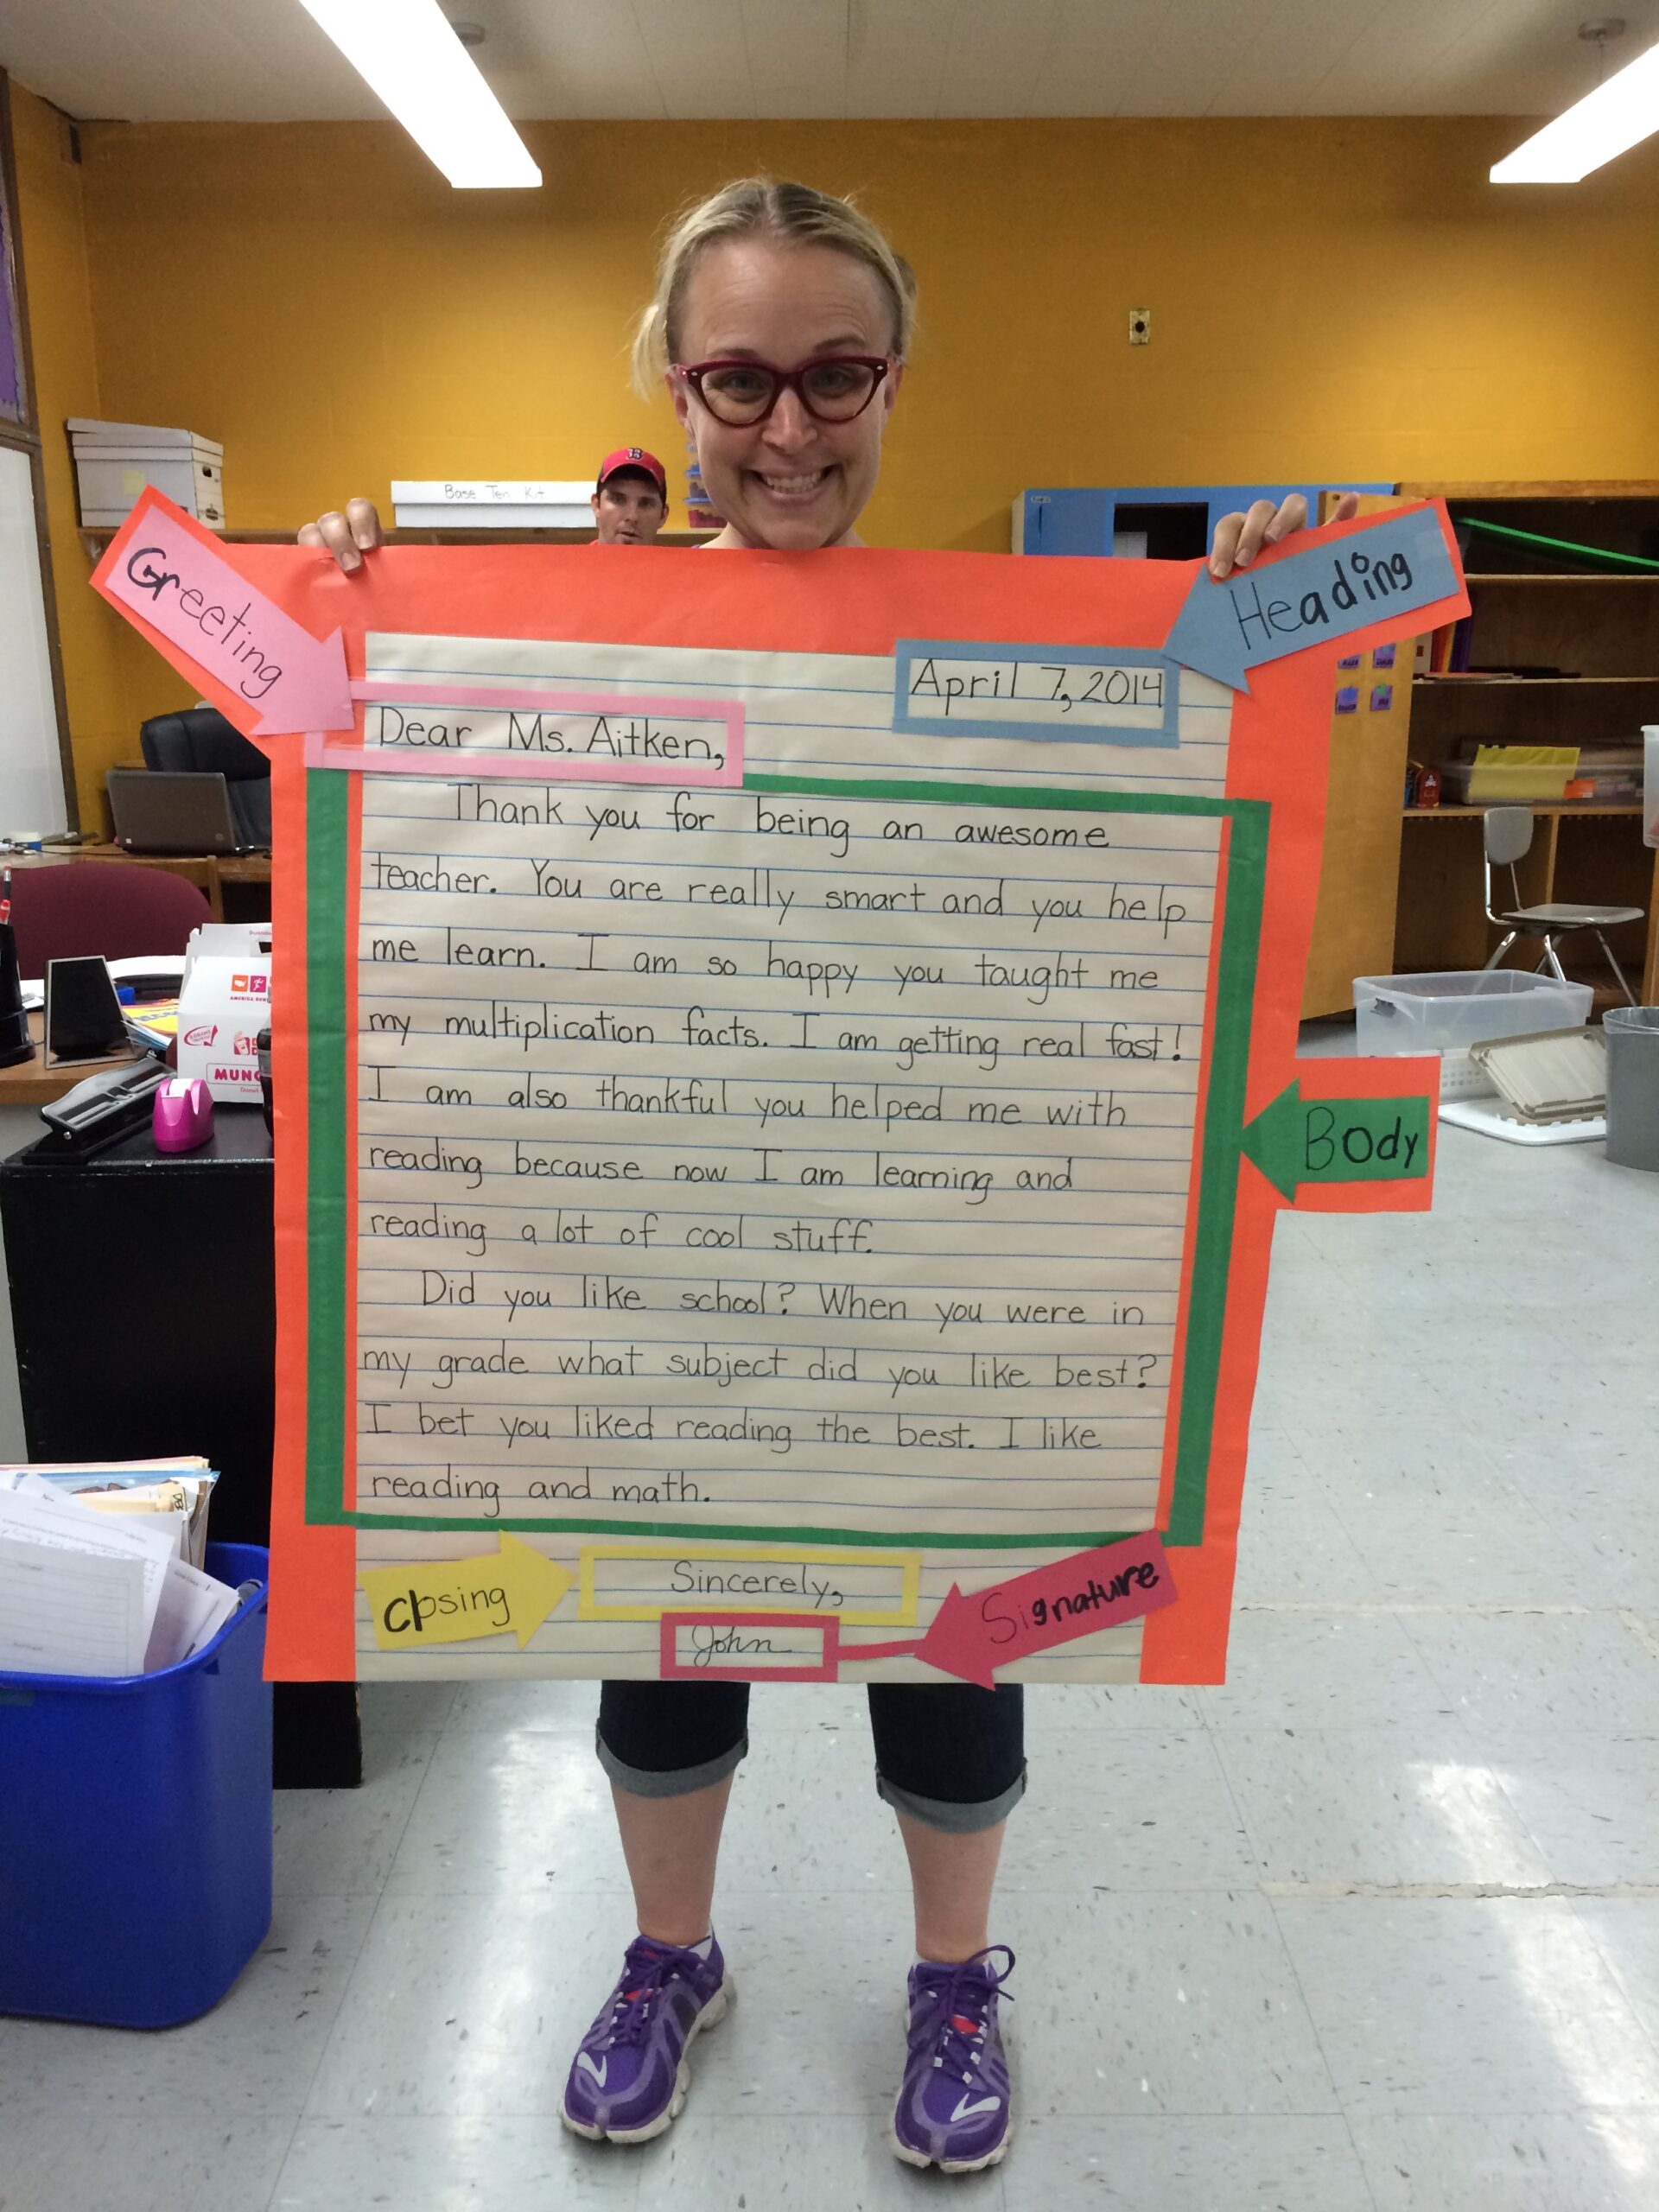 Base Ten Kit
Greeting
Heading
April 7, 2014
Dear Ms. Aitken,
Thank you for being an awesome
teacher. You are really smart and you help
me learn. I am so happy you taught me
my multiplication facts. I am getting real fast!
I am also thankful you helped me with
reading because now I am learning and
reading a lot of cool stuff.
Body
Did you like school? When you were in
my grade what subject did you like best?
I bet you liked reading the best. I like
reading and math.
Closing
Sincerely,
Signature
John
B
AMERICA RUN
MUNC